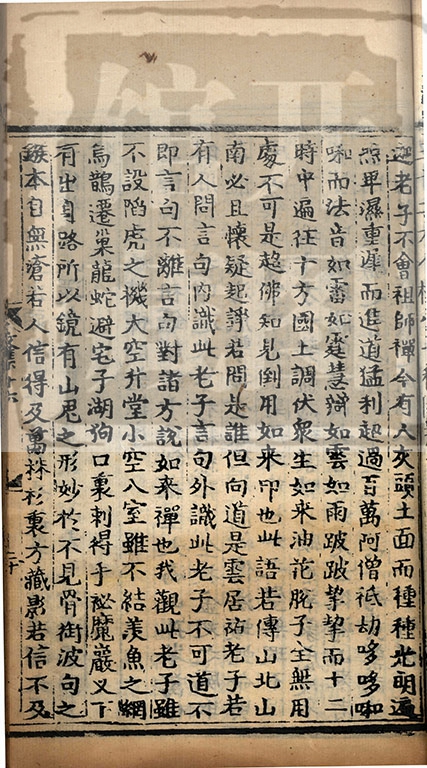 迦老子不會祖師禪今有人灰頭土面而種種光明遍
照卑濕重遲而進道猛利起過百萬阿僧祇劫哆哆啝
啝而法音如雷如霆慧辯如雲如雨跛跛挈挈而十二
時中遍往十方國土調伏衆生如来油䓤脘子全無用
處不可是超佛知見倒用如来印也此語若傳山北山
南必且懷疑起諍若問是誰但向道是雲居祐老子若
有人問言句內識此老子言句外識此老子不可道不
即言句不離言句對諸方說如来禪也我觀此老子雖
不設陷虎之機大空升堂小空入室雖不結羡魚之網
烏鵲遷巢龍蛇避宅子湖狗口裏刺得手祕魔巖乂下
有出身路所以鏡有山鬼之形妙於不見骨衘波句之
鏃本自無瘡若人信得及萬株衫裏方藏影若信不及
二十